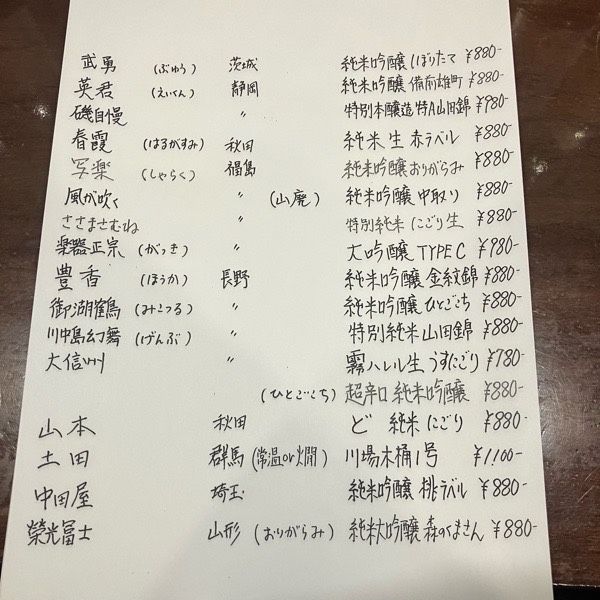 武勇 (ぶゆう) 茨城 純米吟醸 しぼりたて ¥880-
英君 (えいくん) 静岡 純米吟醸 備前雄町 ¥880-
磯自慢 〃 特別本醸造 特A山田錦 ¥980-
春霞 (はるがすみ) 秋田 純米生 赤ラベル ¥880-
写楽 (しゃらく) 福島 純米吟醸 おりがらみ ¥880-
風が吹く 〃 (山廃) 純米吟醸 中取り ¥880-
ささまさむね 〃 特別純米 にごり生 ¥880-
楽器正宗 (がっき) 〃 大吟醸 TYPE C ¥980-
豊香 (ほうか) 長野 純米吟醸 金紋錦 ¥880-
御湖鶴 (みこつる) 〃 純米吟醸 ひとごこち ¥880-
川中島幻舞 (げんぶ) 〃 特別純米 山田錦 ¥880-
大信州 〃 霧ハレル生 うすにごり ¥780-
(ひとごこち) 超辛口 純米吟醸 ¥880-
山本 秋田 ど 純米 にごり ¥880-
土田 群馬 (常温or燗) 川場木桶1号 ¥1.100-
中田屋 埼玉 純米吟醸 桃ラベル ¥880-
榮光冨士 山形 (おりがらみ) 純米大吟醸 森のくまさん ¥880-